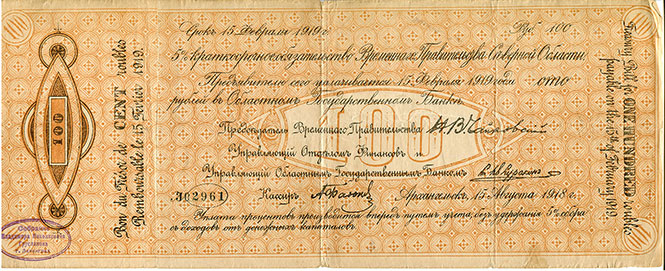 Срокъ 15 Февраля 1919 г. Руб. 100
5% краткосрочное обязательство Временнаго Правительства Сѣверной Области.
Предъявителю сего уплачивается 15 Февраля 1919 года сто
рублей въ Областномъ Государственномъ Банкѣ.
Предсѣдатель Временнаго Правительства Н.В.Чайковскій
Управляющій Отдѣломъ Финансовъ и
Управляющій Областнымъ Государственнымъ Банкомъ
Кассиръ
Архангельскъ, 15 Августа 1918 г.
Уплата процентовъ производится впередъ путемъ учета, безъ удержанія 5% сбора
съ доходовъ отъ денежныхъ капиталовъ.
З02961
100
100
Bon du Trésor de CENT roubles
Remboursable le 15 Février 1919.
Treasury Bill for ONE HUNDRED roubles
payable on the 15th of February 1919.
Собрание